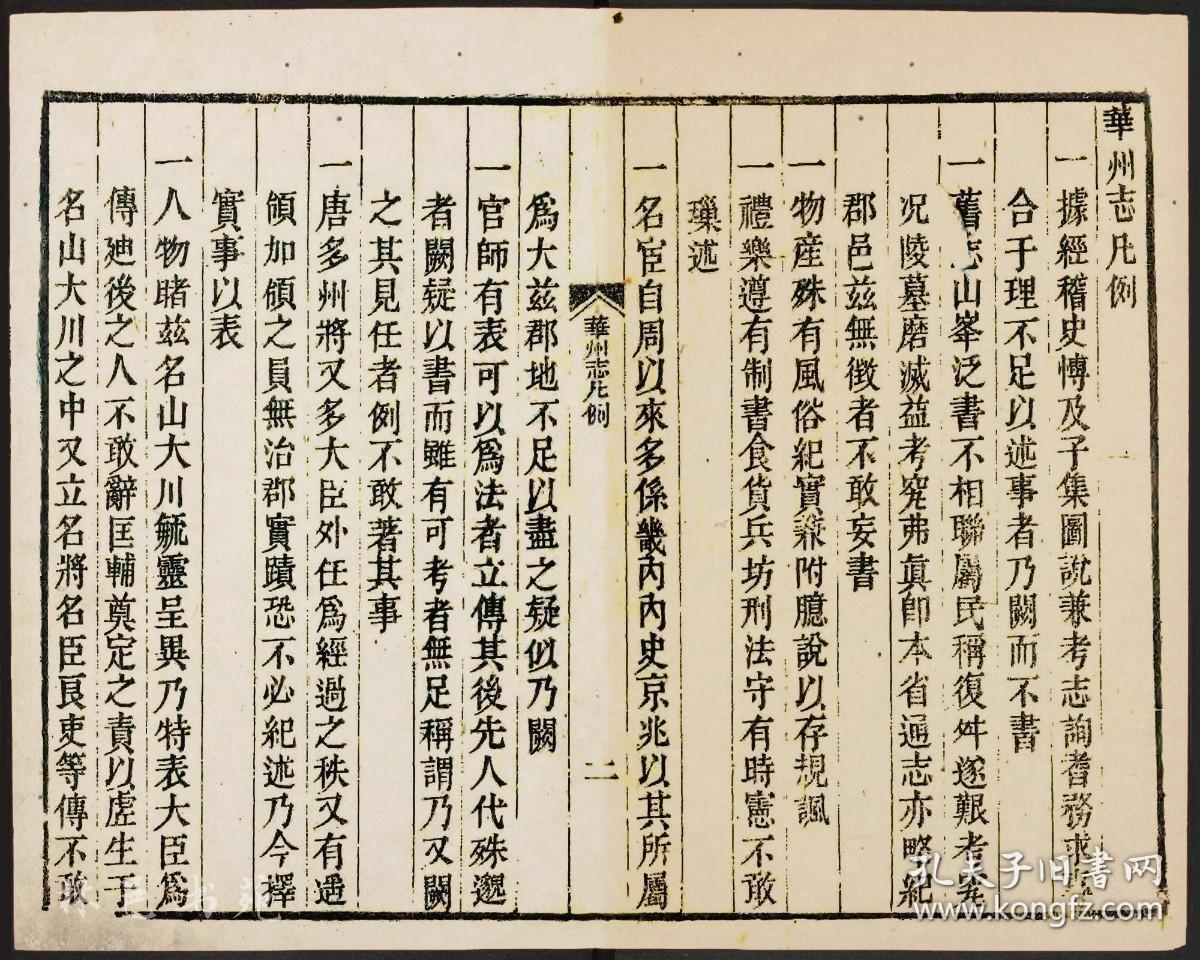 華州志凡例
一據經稽史愽及子集圖說兼考志詢耆務求
合于理不足以述事者乃闕而不書
一舊志山峯泛書不相聯屬民稱復舛遂艱考
况陵墓磨滅益考究弗眞卽本省通志亦略紀
郡邑兹無徴者不敢妄書
一物産殊有風俗紀實兼附臆說以存規諷
一禮樂遵有制書食貨兵坊刑法守有時憲不敢
瑣述
一名宦自周以來多係畿內內史京兆以其所屬
華州志凡例
二
爲大兹郡地不足以盡之疑似乃闕
一官師有表可以爲法者立傳其後先人代殊邈
者闕疑以書而雖有可考者無足稱謂乃又闕
之其見任者例不敢著其事
一唐多州將又多大臣外任爲經過之秩又有遥
領加領之員無治郡實蹟恐不必紀述乃今擇
實事以表
一人物睹兹名山大川毓靈呈異乃特表大臣爲
傳廸後之人不敢辭匡輔奠定之責以虗生于
名山大川之中又立名將名臣良吏等傳不敢
孔夫子旧书网
www.kongfz.com
书苑